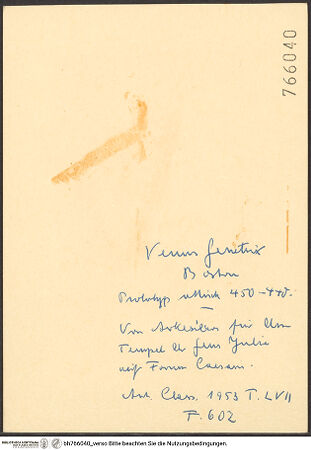 766040
Venus Genetrix
Boston
Prototyp attisch 450-440.
Von Arkesilaos für den
Tempel der gens Julia
auf Forum Caesaris.
Ant. Class. 1953 T. LVII
F. 602
bh766040_verso Bitte beachten Sie die Nutzungsbedingungen.